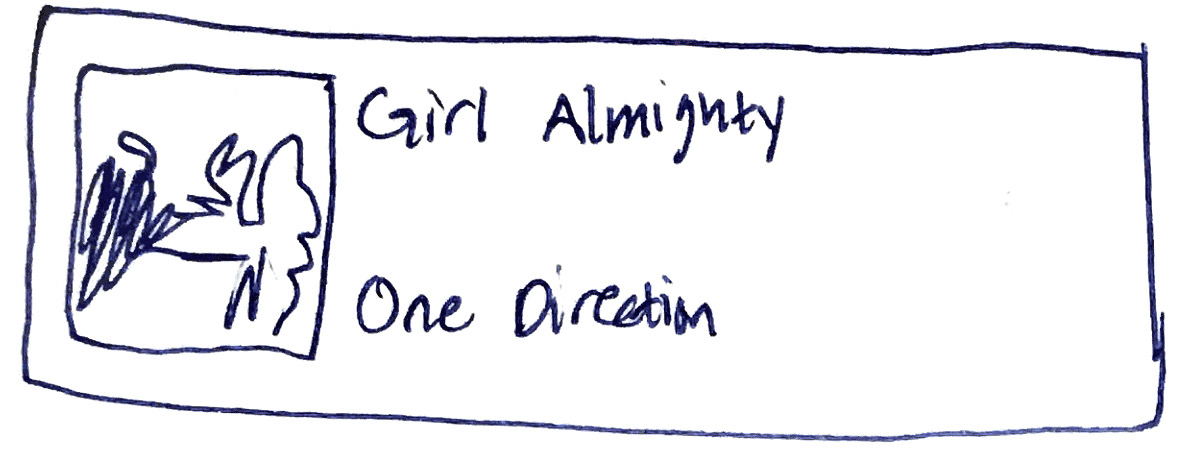 Girl Almighty
One Direction